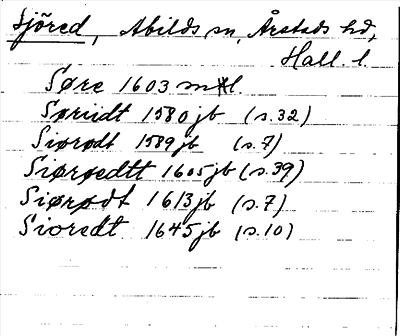 Sjöred, Abilds sn, Årstads hd,
Hall. l.
Søre 1603 mtl.
Søriidt 1580 jb (s.32)
Siørødt 1589 jb (s.7)
Siørøedtt 1605 jb (s.39)
Siørødt 1613 jb (s.7)
Sioredt 1645 jb (s.10)